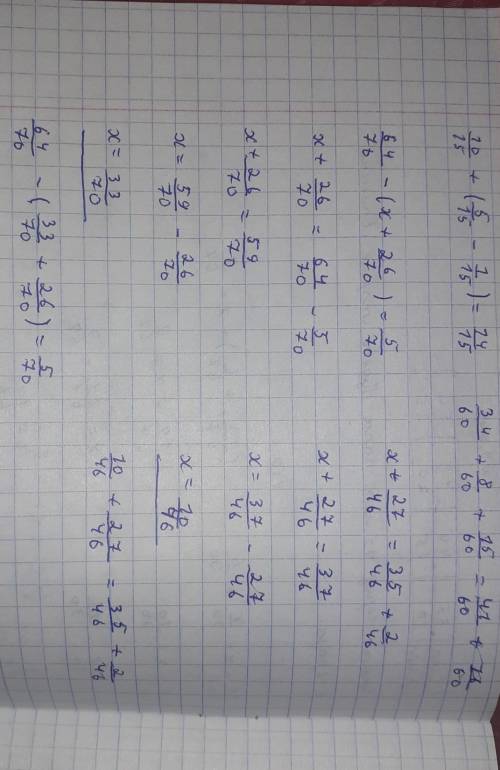 10/15 + (5/15 - 1/15) = 14/15
64/70 - (x + 26/70) = 5/70
x + 26/70 = 64/70 - 5/70
x + 26/70 = 59/70
x = 59/70 - 26/70
x = 33/70
64/70 - (33/70 + 26/70) = 5/70
34/60 + 8/60 + 15/60 = 41/60 + 16/60
x + 27/46 = 35/46 + 2/46
x + 27/46 = 37/46
x = 37/46 - 27/46
x = 10/46
10/46 + 27/46 = 35/46 + 2/46